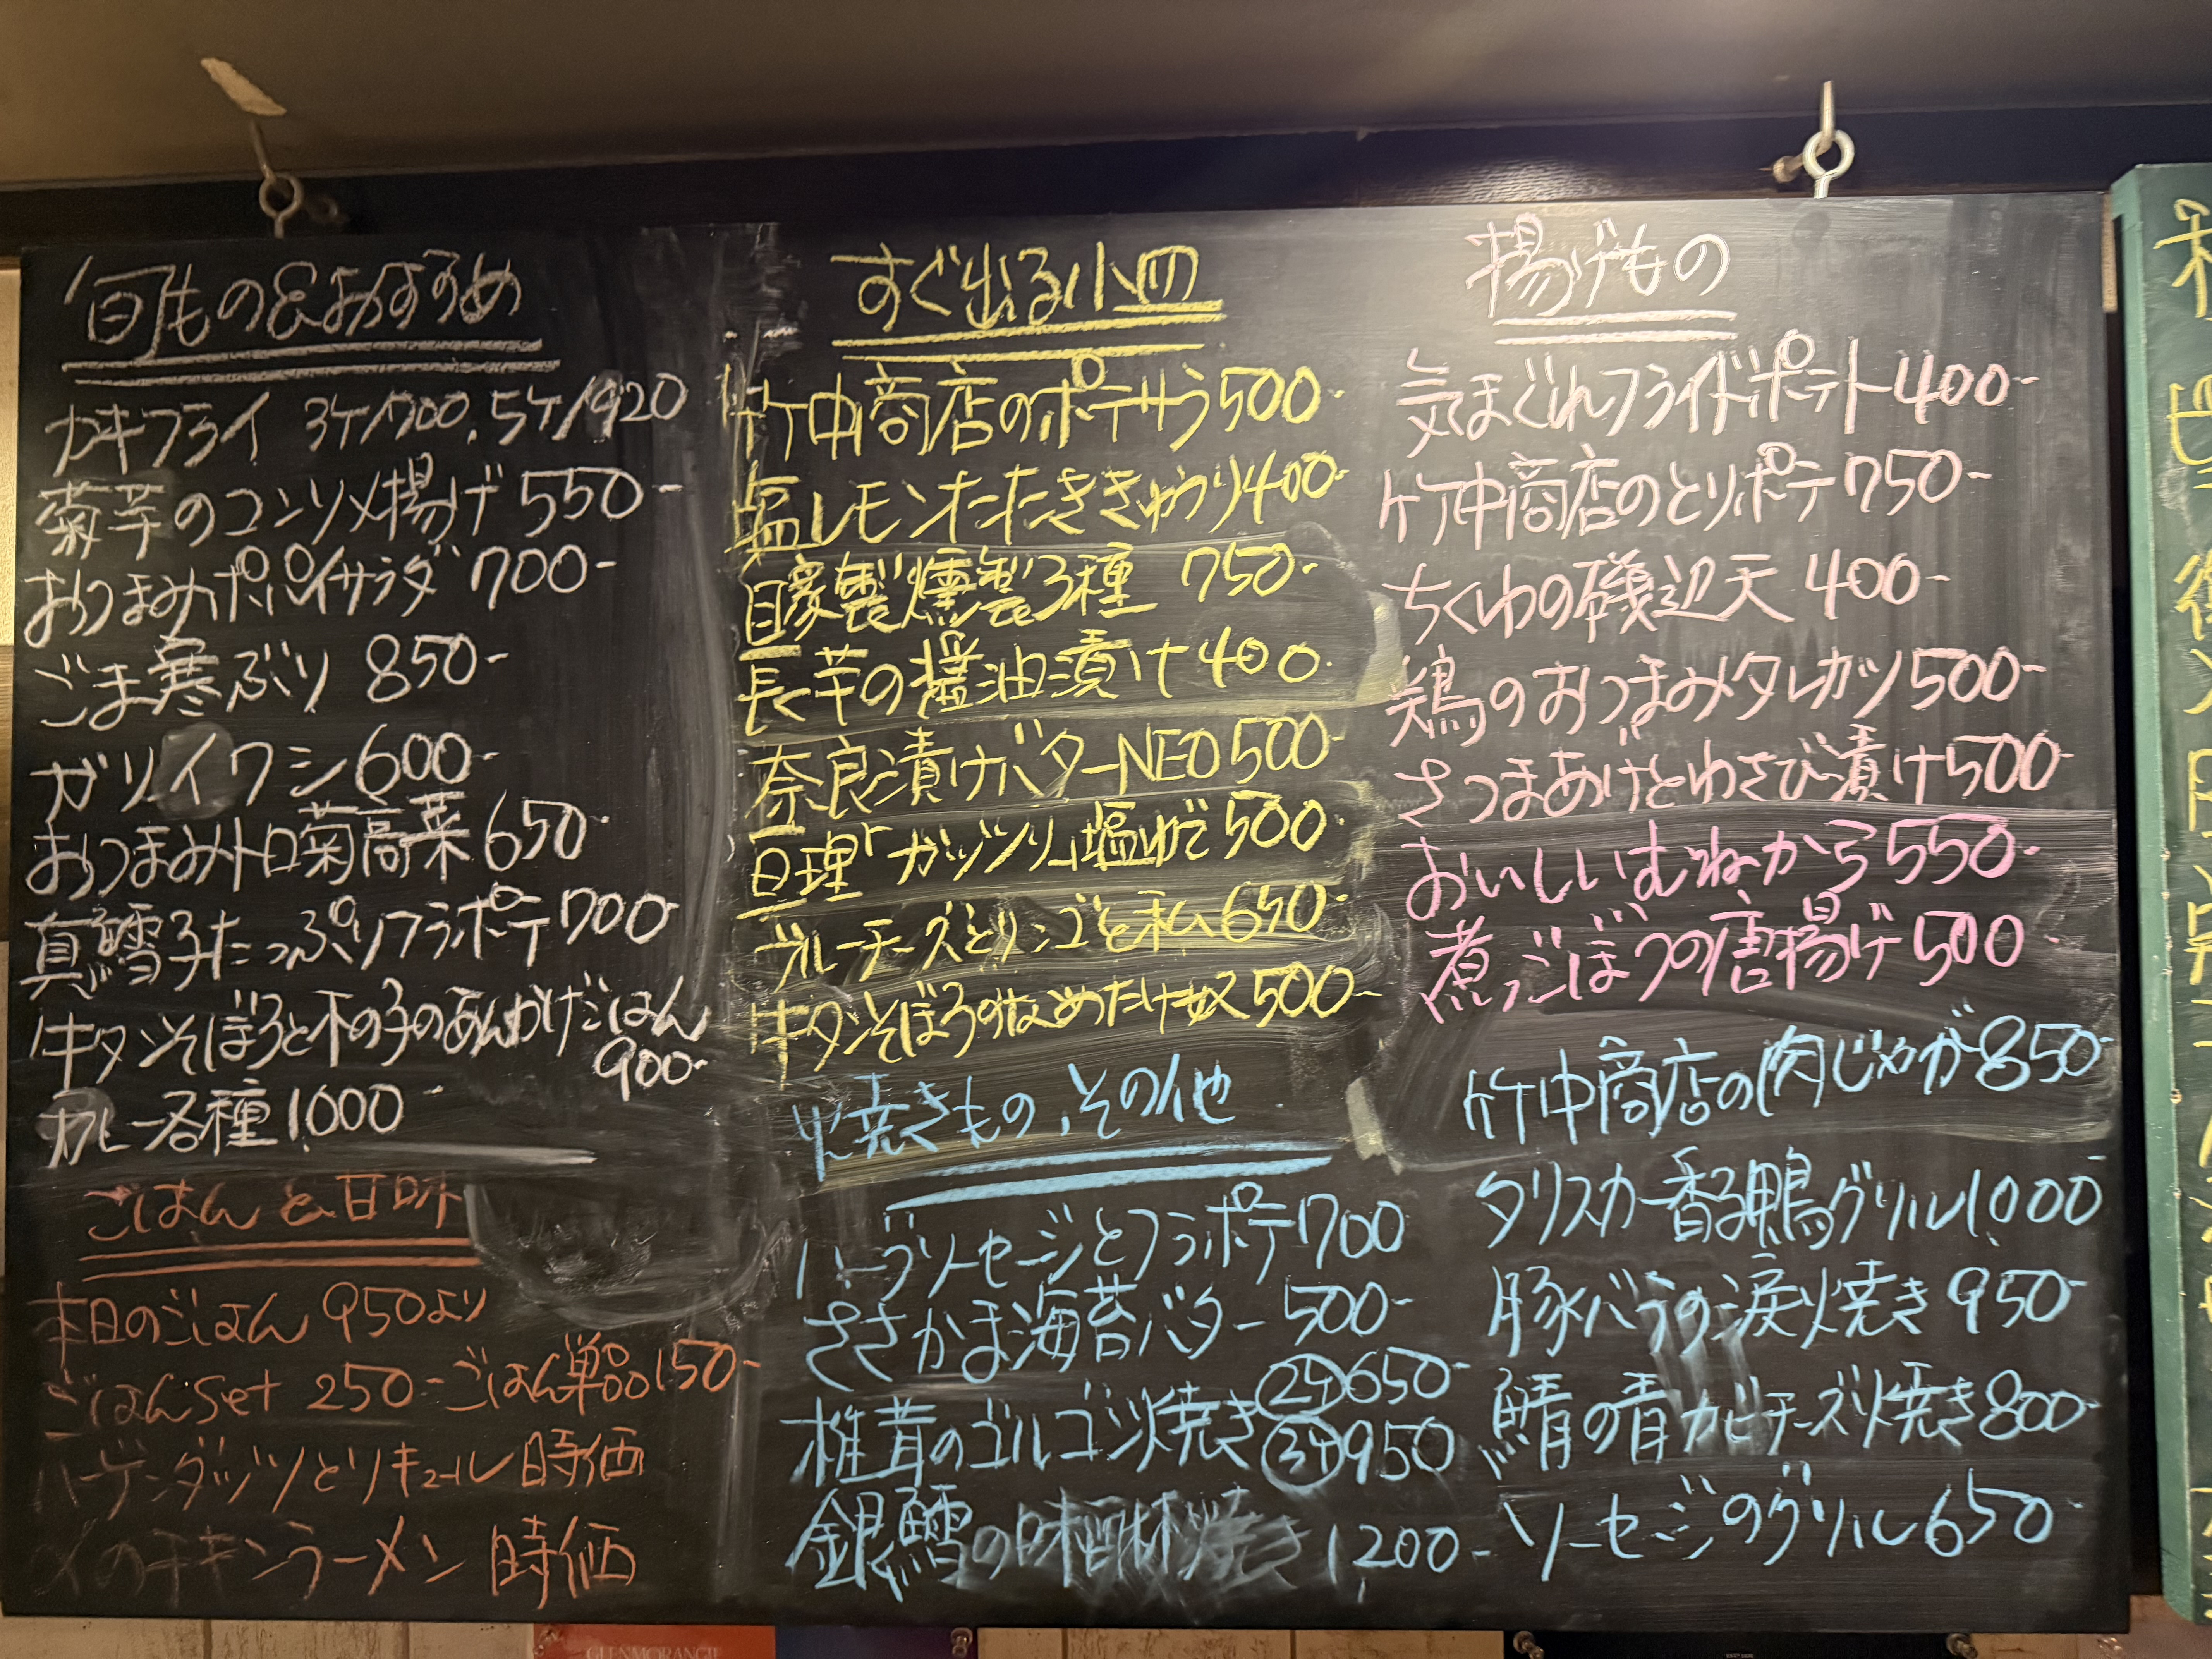 旬もの&おすすめ
カキフライ 3ケ/700、5ケ/920
菊芋のコンソメ揚げ 550-
おつまみポパイサラダ 700-
ごま寒ぶり 850-
ガリイワシ 600-
おつまみトロ菊高菜 650-
真鱈子たっぷりフラポテ 700-
牛タンそぼろと木の子のあんかけごはん
900-
カレー各種 1000-
ごはんと甘味
本日のごはん 950より
ごはんset 250- ごはん単品 150-
ハーゲンダッツとリキュール 時価
〆のチキンラーメン 時価
すぐ出る小皿
竹中商店のポテサラ 500-
塩レモンたたききゅうり 400-
自家製燻製3種 750-
長芋の醤油漬け 400-
奈良漬けバターNEO 500-
亘理「ガッツリ」塩ゆで 500-
ブルーチーズとリンゴと私 650-
牛タンそぼろのなめたけ奴 500-
焼きもの、その他
ハーブソーセージとフラポテ 700
ささかま海苔バター 500-
椎茸のゴルゴンゾ焼き ②ケ 650-
③ケ 950
銀鱈の味醂焼き 1200-
揚げもの
気まぐれフライドポテト 400-
竹中商店のとりポテ 750-
ちくわの磯辺天 400-
鶏のおつまみタレカツ 500-
さつまあげとわさび漬け 500-
おいしいむねから 550-
煮ごぼうの唐揚げ 500-
竹中商店の肉じゃが 850-
タリスカー香る鴨グリル 1000-
豚バラの涙焼き 950-
鯖の青カビチーズ焼き 800-
ソーセージのグリル 650-
GLENMORANGIE